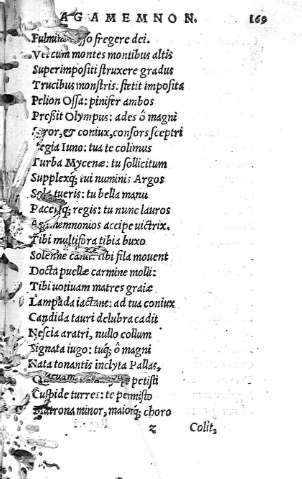 AGAMEMNON. 169
Fulmina fregere dei.
Vel cum montes montibus altis
Superimpositi struxere gradus
Trucibus monstris. stetit imposita
Pelion Ossa: pinifer ambos
Preßit Olympus: ades ô magni
soror, & coniux, consors sceptri
Regia Iuno: tua te colimus
Turba Mycenæ: tu sollicitum
Supplexq; tui numinis Argos
Sola tueris: tu bella manu
Pacemq; regis: tu nunc lauros
Agamemnonios accipe uictrix.
Tibi multifora tibia buxo
Solenne canit: tibi fila mouent
Docta puellæ carmine molli:
Tibi uotiuam matres graiæ
Lampada iactant: ad tua coniux
Candida tauri delubra cadit
Nescia aratri, nullo collum
Signata iugo: tuq; ô magni
Nata tonantis inclyta Pallas,
petisti
Cuspide turres: te permisto
Matrona minor, maiorq; choro
z Colit,